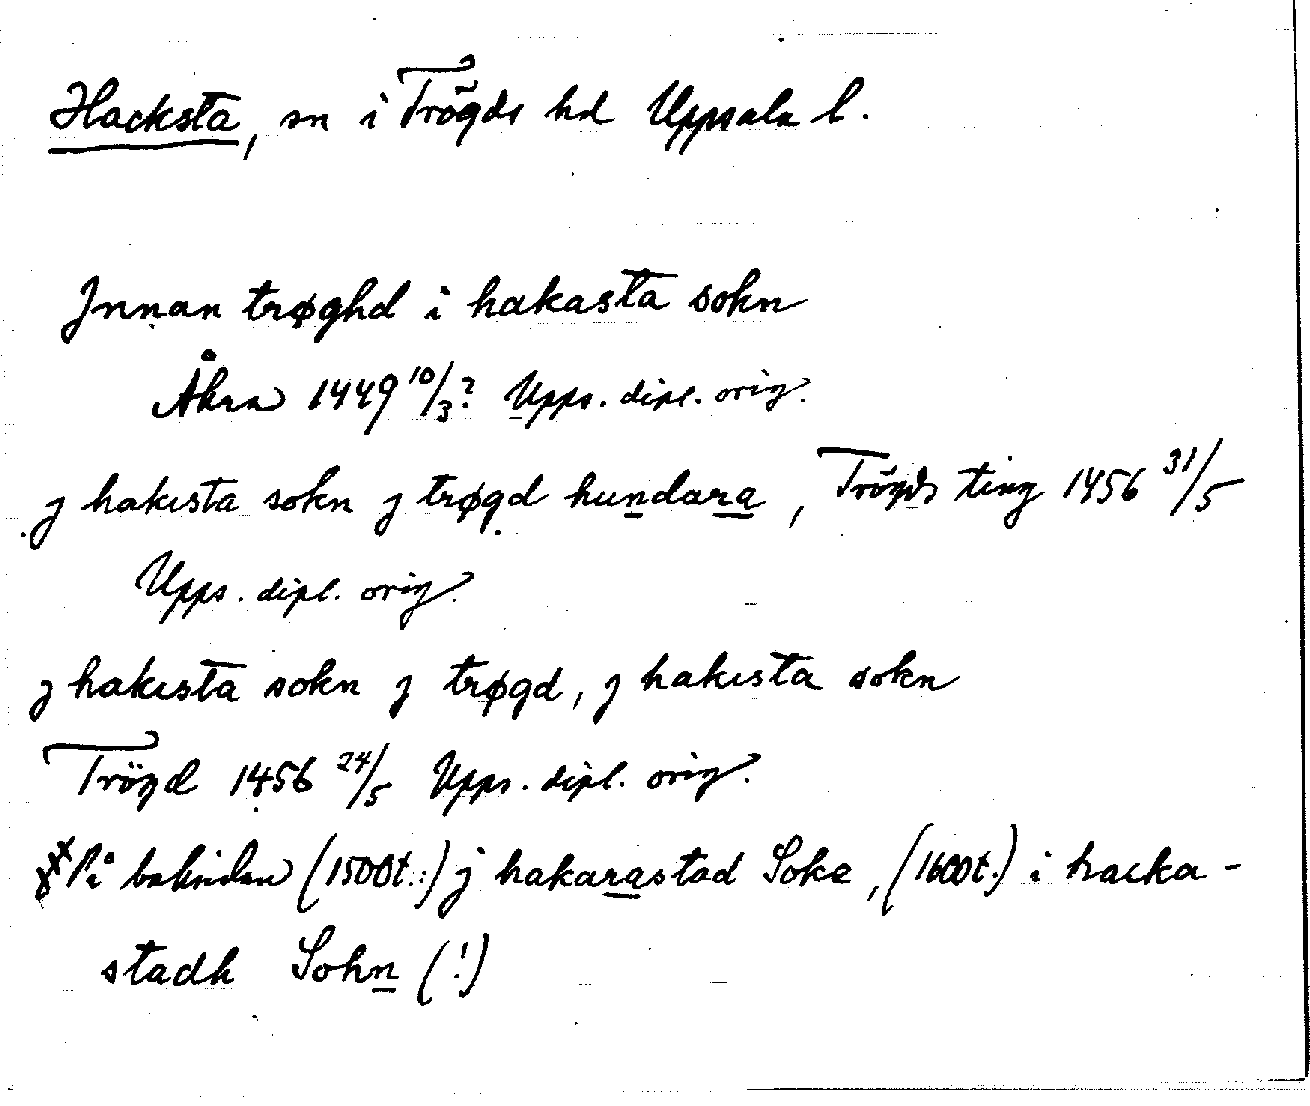 Hacksta, sn i Trögds hd Uppsala l.
Jnnan trøghd i hakasta sokn
Åkra 1449 10/3? Upps. dipl. orig.
j hakista sokn j trøgd hundara, Trögds ting 1456 31/5
Upps. dipl. orig.
j hakista sokn j trøgd, j hakista sokn
Trögd 1456 24/5 Upps. dipl. orig.
På baksidan (1500t.:) j hakarastad Soke, (1600t.) i hacka-
stadh Sohn (!)